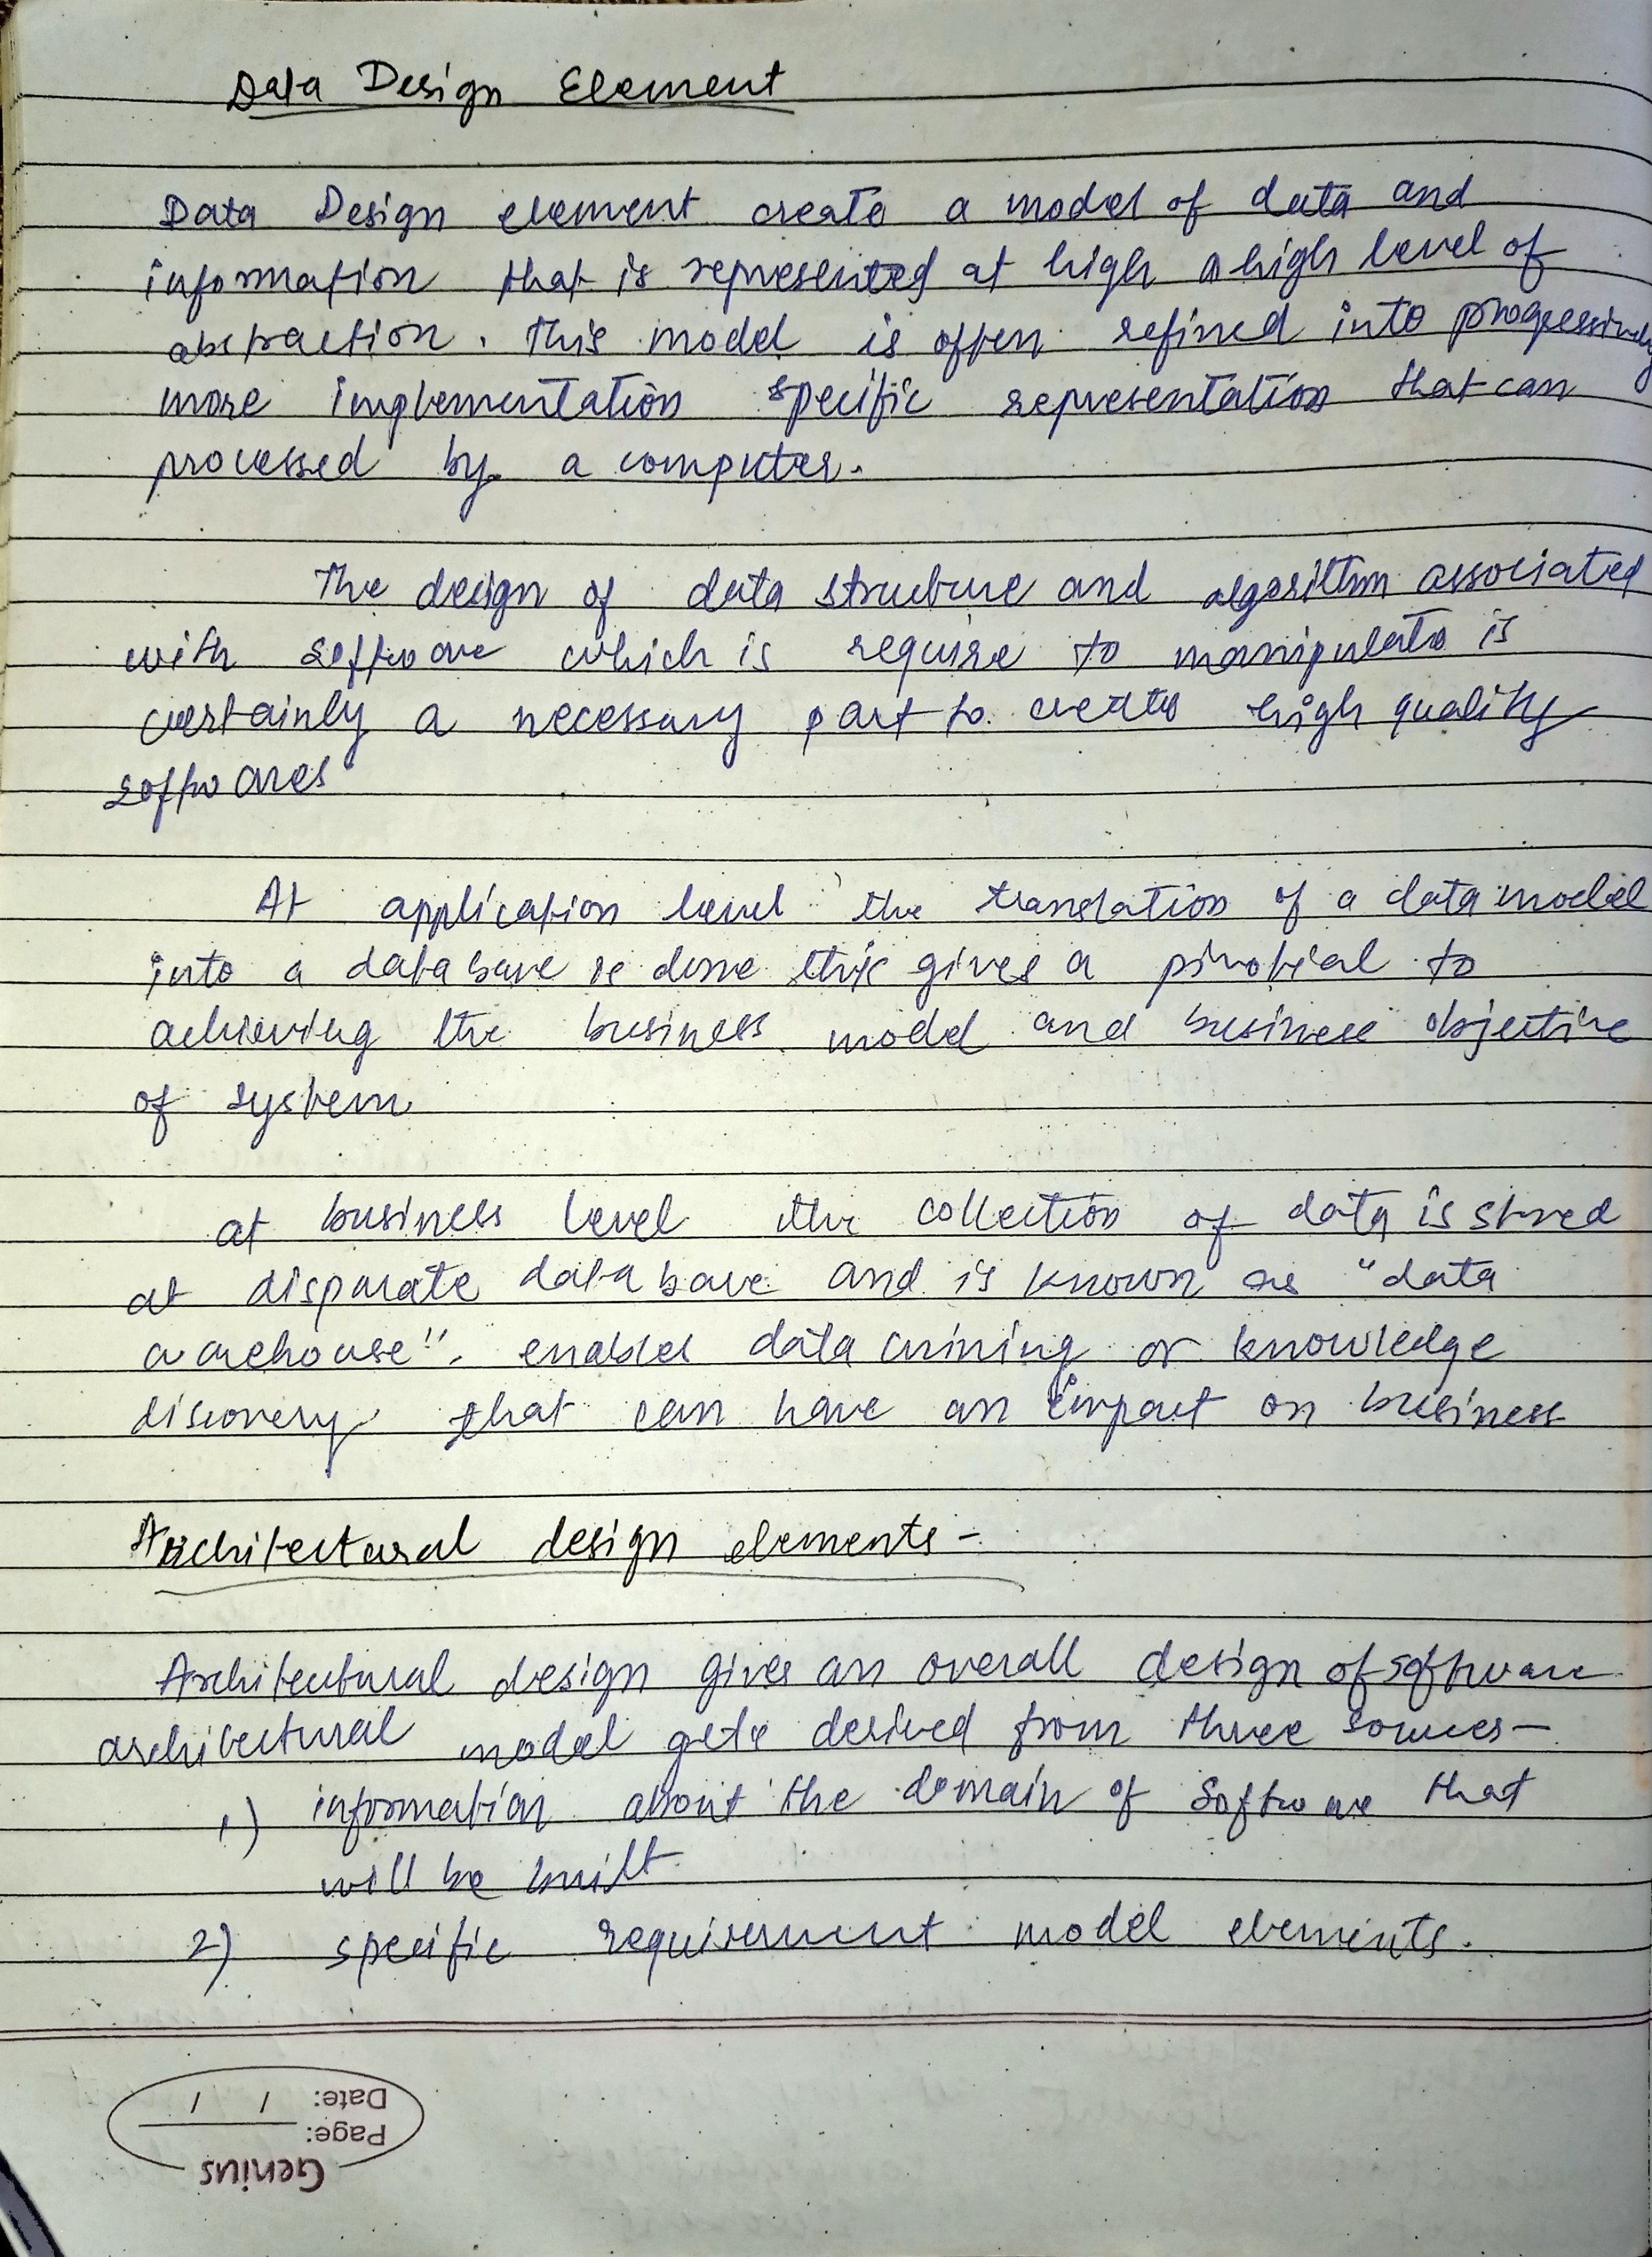 Data Design Element
Data Design element create a model of data and
information that is represented at high a high level of
abstraction. This model is often refined into progressively
more implementation specific representation that can
processed by a computer.
The design of data structure and algorithm associated
with software which is require to manipulate is
certainly a necessary part to create high quality
softwares
At application level the translation of a data model
into a database is done this gives a pivotial to
achieving the business model and business objective
of system
at business level the collection of data is stored
at disparate database and is known as "data
warehouse". enables data mining or knowledge
discovery that can have an impact on business
Architectural design elements -
Architectural design gives an overall design of software
architectural model gets derived from three sources-
1) information about the domain of software that
will be built
2) specific requirement model elements.
Date: / /
Page:
Genius